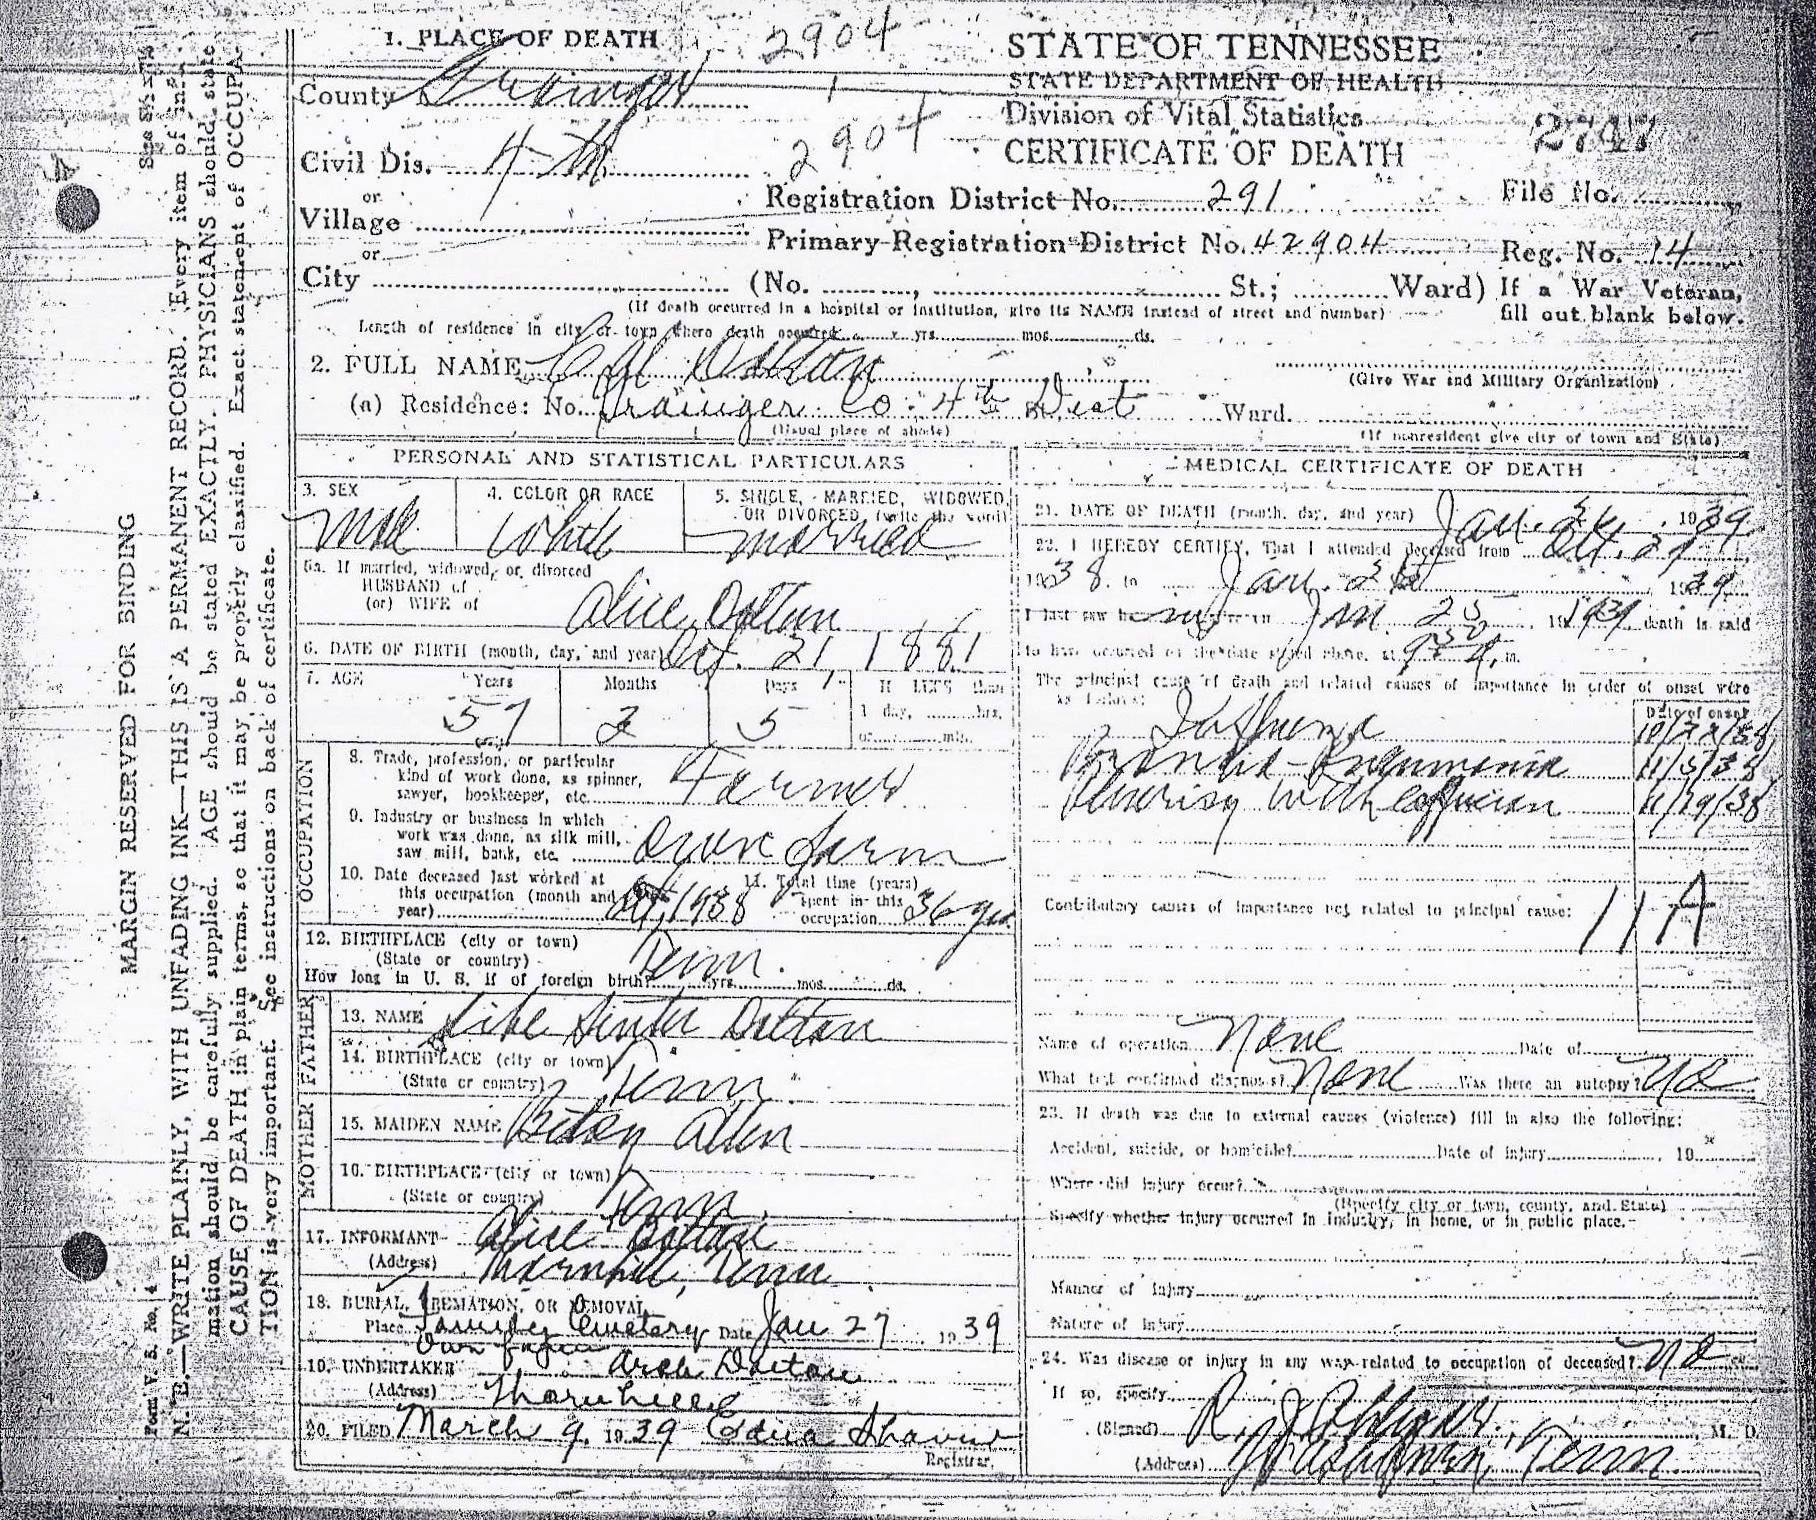 MARGIN RESERVED FOR BINDING
N. B.—WRITE PLAINLY, WITH UNFADING INK—THIS IS A PERMANENT RECORD. Every item of infor-
mation should be carefully supplied. AGE should be stated EXACTLY. PHYSICIANS should state
CAUSE OF DEATH in plain terms, so that it may be properly classified. Exact statement of OCCUPA-
TION is very important. See instructions on back of certificate.
Form V. S. No. 4
1. PLACE OF DEATH
2904
STATE OF TENNESSEE
STATE DEPARTMENT OF HEALTH
County Grainger
1
Division of Vital Statistics
CERTIFICATE OF DEATH
Civil Dis. 4th
2904
or
Village
Registration District No. 291
File No.
or
Primary Registration District No. 42904
Reg. No. 14
City (No. , St.; Ward)
If a War Veteran,
fill out blank below.
(If death occurred in a hospital or institution, give its NAME instead of street and number)
Length of residence in city or town where death occurred yrs. mos. ds.
2. FULL NAME Dalton
(Give War and Military Organization)
(a) Residence: No. Grainger Co. 4th Dist Ward.
(Usual place of abode)
(If nonresident give city of town and State)
PERSONAL AND STATISTICAL PARTICULARS
3. SEX
Male
4. COLOR OR RACE
White
5. SINGLE, MARRIED, WIDOWED,
OR DIVORCED (write the word)
married
5a. If married, widowed, or divorced
HUSBAND of
(or) WIFE of
Alice Dalton
6. DATE OF BIRTH (month, day, and year) Oct. 21, 1881
7. AGE
Years 57
Months
Days 5
If LESS than
1 day, hrs.
or min.
OCCUPATION
8. Trade, profession, or particular
kind of work done, as spinner,
sawyer, bookkeeper, etc. Farmer
9. Industry or business in which
work was done, as silk mill,
saw mill, bank, etc. Own farm
10. Date deceased last worked at
this occupation (month and
year) Oct, 1938
11. Total time (years)
spent in this
occupation 36 yrs.
12. BIRTHPLACE (city or town)
(State or country) Tenn.
How long in U. S. if of foreign birth? yrs. mos. ds.
FATHER
13. NAME Dalton
14. BIRTHPLACE (city or town)
(State or country) Tenn.
MOTHER
15. MAIDEN NAME Betsy Allen
16. BIRTHPLACE (city or town)
(State or country) Tenn.
17. INFORMANT Alice Dalton
(Address) Thornhill, Tenn
18. BURIAL, CREMATION, OR REMOVAL
Place Family Cemetery Date Jan 27 1939
own farm
19. UNDERTAKER Arch Dalton
(Address) Thornhill
20. FILED March 9, 1939 Edna Shaver
Registrar.
MEDICAL CERTIFICATE OF DEATH
21. DATE OF DEATH (month, day, and year) Jan. 26, 1939
22. I HEREBY CERTIFY, That I attended deceased from Oct. 29
1938 to Jan. 26 1939
I last saw him alive on Jan. 25, 1939 death is said
to have occurred on the date stated above, at m.
The principal cause of death and related causes of importance in order of onset were
as follows:
Date of onset
Broncho-Pneumonia 11/5/38
Pleurisy with effusion 11/29/38
Contributory causes of importance not related to principal cause:
11A
Name of operation None Date of
What test confirmed diagnosis? None Was there an autopsy? No
23. If death was due to external causes (violence) fill in also the following:
Accident, suicide, or homicide? Date of injury , 19
Where did injury occur?
(Specify city or town, county, and State)
Specify whether injury occurred in industry, in home, or in public place.
Manner of injury
Nature of injury
24. Was disease or injury in any way related to occupation of deceased? No
If so, specify
(Signed) R. J. M. D.
(Address) Washburn, Tenn.